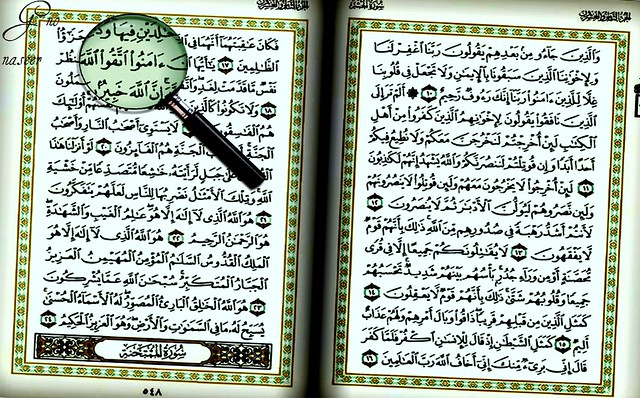 الجزء الثامن والعشرون
سورة الحشر
وَالَّذِينَ جَاءُو مِنْ بَعْدِهِمْ يَقُولُونَ رَبَّنَا اغْفِرْ لَنَا
وَلِإِخْوَانِنَا الَّذِينَ سَبَقُونَا بِالْإِيمَٰنِ وَلَا تَجْعَلْ فِي قُلُوبِنَا
غِلًّا لِلَّذِينَ ءَامَنُوا رَبَّنَا إِنَّكَ رَءُوفٌ رَحِيمٌ ١٠ أَلَمْ تَرَ إِلَى
الَّذِينَ نَافَقُوا يَقُولُونَ لِإِخْوَانِهِمُ الَّذِينَ كَفَرُوا مِنْ أَهْلِ
الْكِتَٰبِ لَئِنْ أُخْرِجْتُمْ لَنَخْرُجَنَّ مَعَكُمْ وَلَا نُطِيعُ فِيكُمْ
أَحَدًا أَبَدًا وَإِنْ قُوتِلْتُمْ لَنَنْصُرَنَّكُمْ وَاللَّهُ يَشْهَدُ إِنَّهُمْ لَكَٰذِبُونَ
١١ لَئِنْ أُخْرِجُوا لَا يَخْرُجُونَ مَعَهُمْ وَلَئِنْ قُوتِلُوا لَا يَنْصُرُونَهُمْ
وَلَئِنْ نَصَرُوهُمْ لَيُوَلُّنَّ الْأَدْبَٰرَ ثُمَّ لَا يُنْصَرُونَ ١٢
لَأَنْتُمْ أَشَدُّ رَهْبَةً فِي صُدُورِهِمْ مِنَ اللَّهِ ذَٰلِكَ بِأَنَّهُمْ قَوْمٌ
لَا يَفْقَهُونَ ١٣ لَا يُقَٰتِلُونَكُمْ جَمِيعًا إِلَّا فِي قُرًى
مُحَصَّنَةٍ أَوْ مِنْ وَرَاءِ جُدُرٍ بَأْسُهُمْ بَيْنَهُمْ شَدِيدٌ تَحْسَبُهُمْ
جَمِيعًا وَقُلُوبُهُمْ شَتَّىٰ ذَٰلِكَ بِأَنَّهُمْ قَوْمٌ لَا يَعْقِلُونَ ١٤
كَمَثَلِ الَّذِينَ مِنْ قَبْلِهِمْ قَرِيبًا ذَاقُوا وَبَالَ أَمْرِهِمْ وَلَهُمْ عَذَابٌ
أَلِيمٌ ١٥ كَمَثَلِ الشَّيْطَٰنِ إِذْ قَالَ لِلْإِنْسَٰنِ اكْفُرْ فَلَمَّا كَفَرَ
قَالَ إِنِّي بَرِيءٌ مِنْكَ إِنِّي أَخَافُ اللَّهَ رَبَّ الْعَٰلَمِينَ ١٦
الجزء الثامن والعشرون
فَكَانَ عَٰقِبَتَهُمَا أَنَّهُمَا فِي خَٰلِدَيْنِ فِيهَا وَذَ جَزَٰؤُا
الظَّٰلِمِينَ ١٧ يَٰأَيُّهَا ءَامَنُوا اتَّقُوا اللَّهَ
نَفْسٌ مَا قَدَّمَتْ لِغَدٍ وَاتَّقُوا إِنَّ اللَّهَ خَبِيرٌ
١٨ وَلَا تَكُونُوا أُولَٰئِكَ
هُمُ الْفَٰسِقُونَ لَا يَسْتَوِي أَصْحَٰبُ النَّارِ وَأَصْحَٰبُ
الْجَنَّةِ الْجَنَّةِ هُمُ الْفَائِزُونَ ٢٠ لَوْ أَنْزَلْنَا هَٰذَا
عَلَىٰ جَبَلٍ لَرَأَيْتَهُ خَٰشِعًا مُتَصَدِّعًا مِنْ خَشْيَةِ
اللَّهِ وَتِلْكَ الْأَمْثَٰلُ نَضْرِبُهَا لِلنَّاسِ لَعَلَّهُمْ يَتَفَكَّرُونَ
٢١ هُوَ اللَّهُ الَّذِي لَا إِلَٰهَ إِلَّا هُوَ عَٰلِمُ الْغَيْبِ وَالشَّهَٰدَةِ
هُوَ الرَّحْمَٰنُ الرَّحِيمُ ٢٢ هُوَ اللَّهُ الَّذِي لَا إِلَٰهَ إِلَّا هُوَ
الْمَلِكُ الْقُدُّوسُ السَّلَٰمُ الْمُؤْمِنُ الْمُهَيْمِنُ الْعَزِيزُ
الْجَبَّارُ الْمُتَكَبِّرُ سُبْحَٰنَ اللَّهِ عَمَّا يُشْرِكُونَ
٢٣ هُوَ اللَّهُ الْخَٰلِقُ الْبَارِئُ الْمُصَوِّرُ لَهُ الْأَسْمَاءُ الْحُسْنَىٰ
يُسَبِّحُ لَهُ مَا فِي السَّمَٰوَٰتِ وَالْأَرْضِ وَهُوَ الْعَزِيزُ الْحَكِيمُ ٢٤
سُورَةُ الْمُمْتَحَنَةِ
٥٤٨
naser